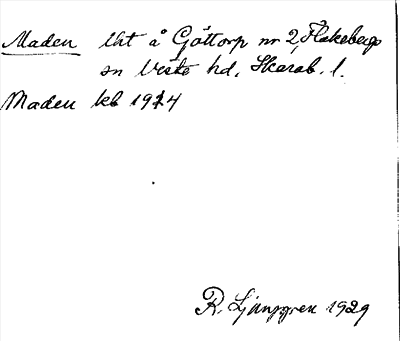 Maden lht å Göttorp nr 2, Flakebergs
sn Viste hd, Skarab. l.
Maden kb 1914
R. Ljunggren 1929